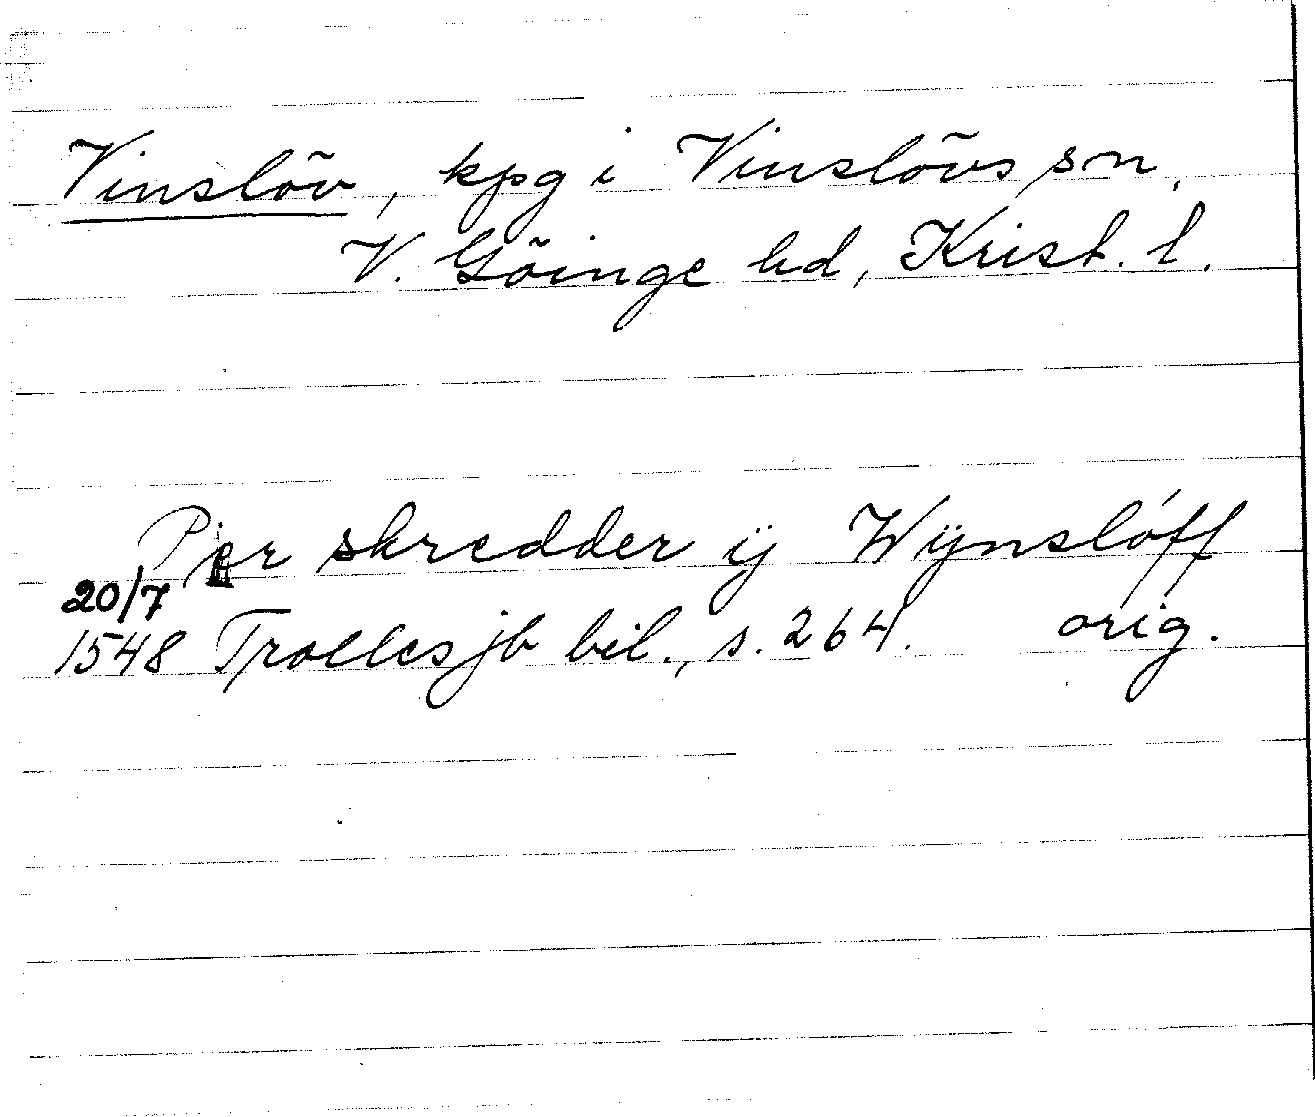 Vinslöv, kpg i Vinslövs sn,
V. Göinge hd, Krist. l.
Per skredder ij Wÿnslóff
20/7
1548 Trolles jb bil., s. 264. orig.